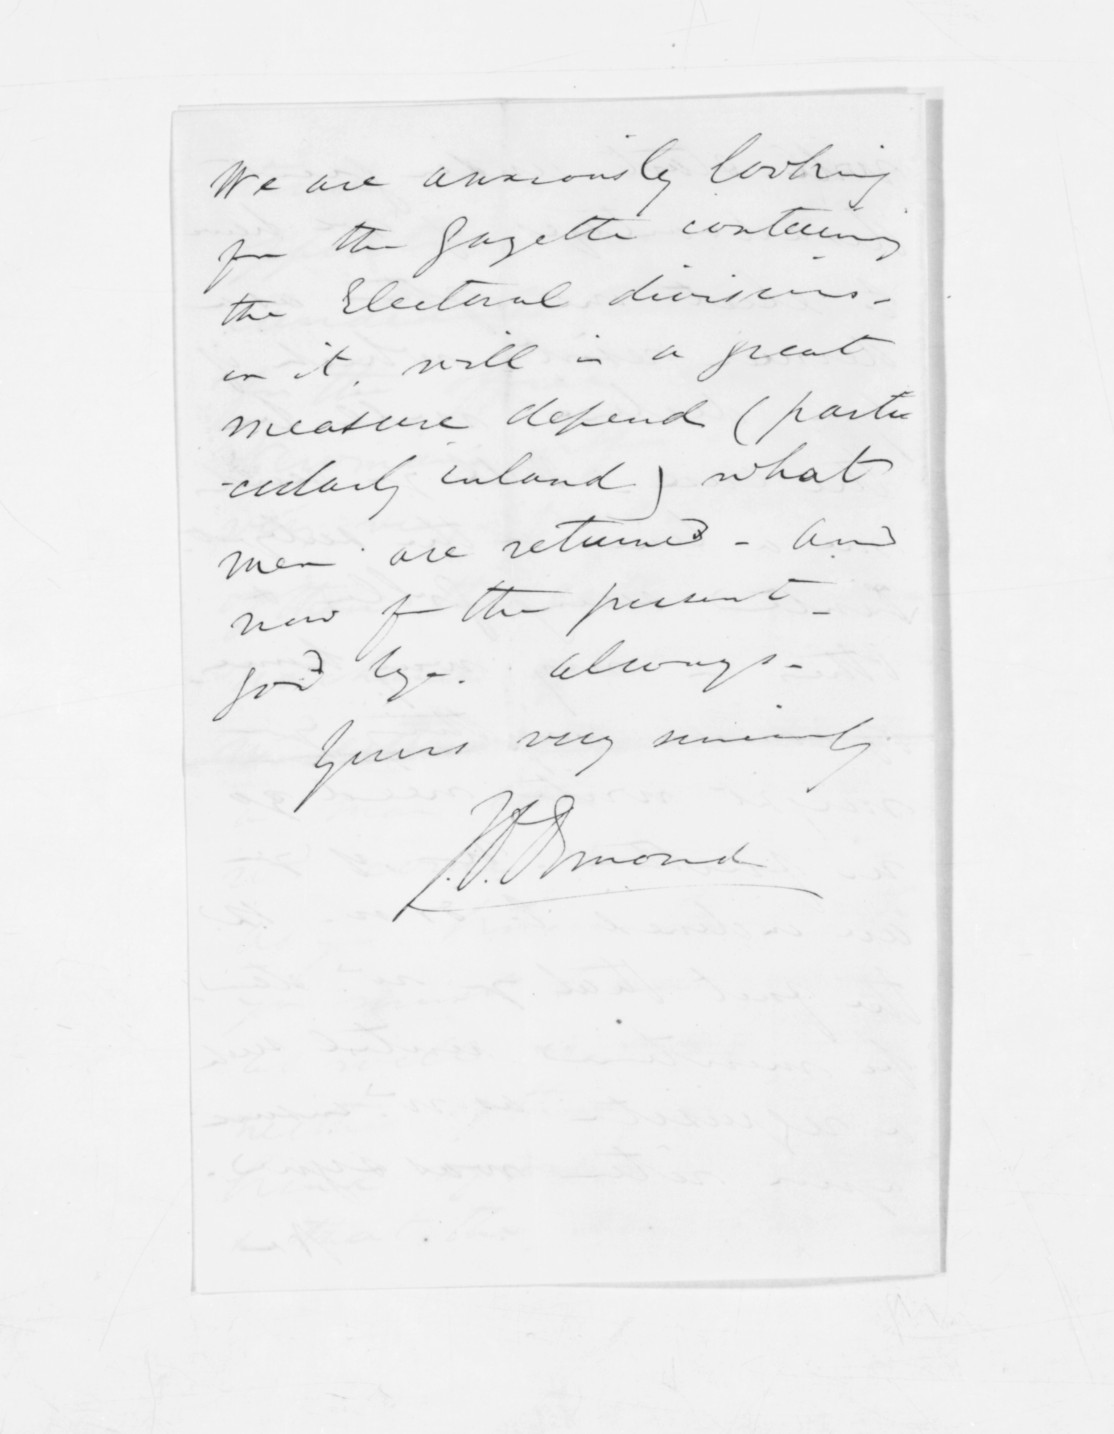 We are anxiously looking
for the Gazette containing
the Electoral divisions -
on it, will in a great
measure depend (partic
-cularly inland) what
men are returned - and
now for the present -
good bye. always -
Yours very sincerely
J. D. Ormond